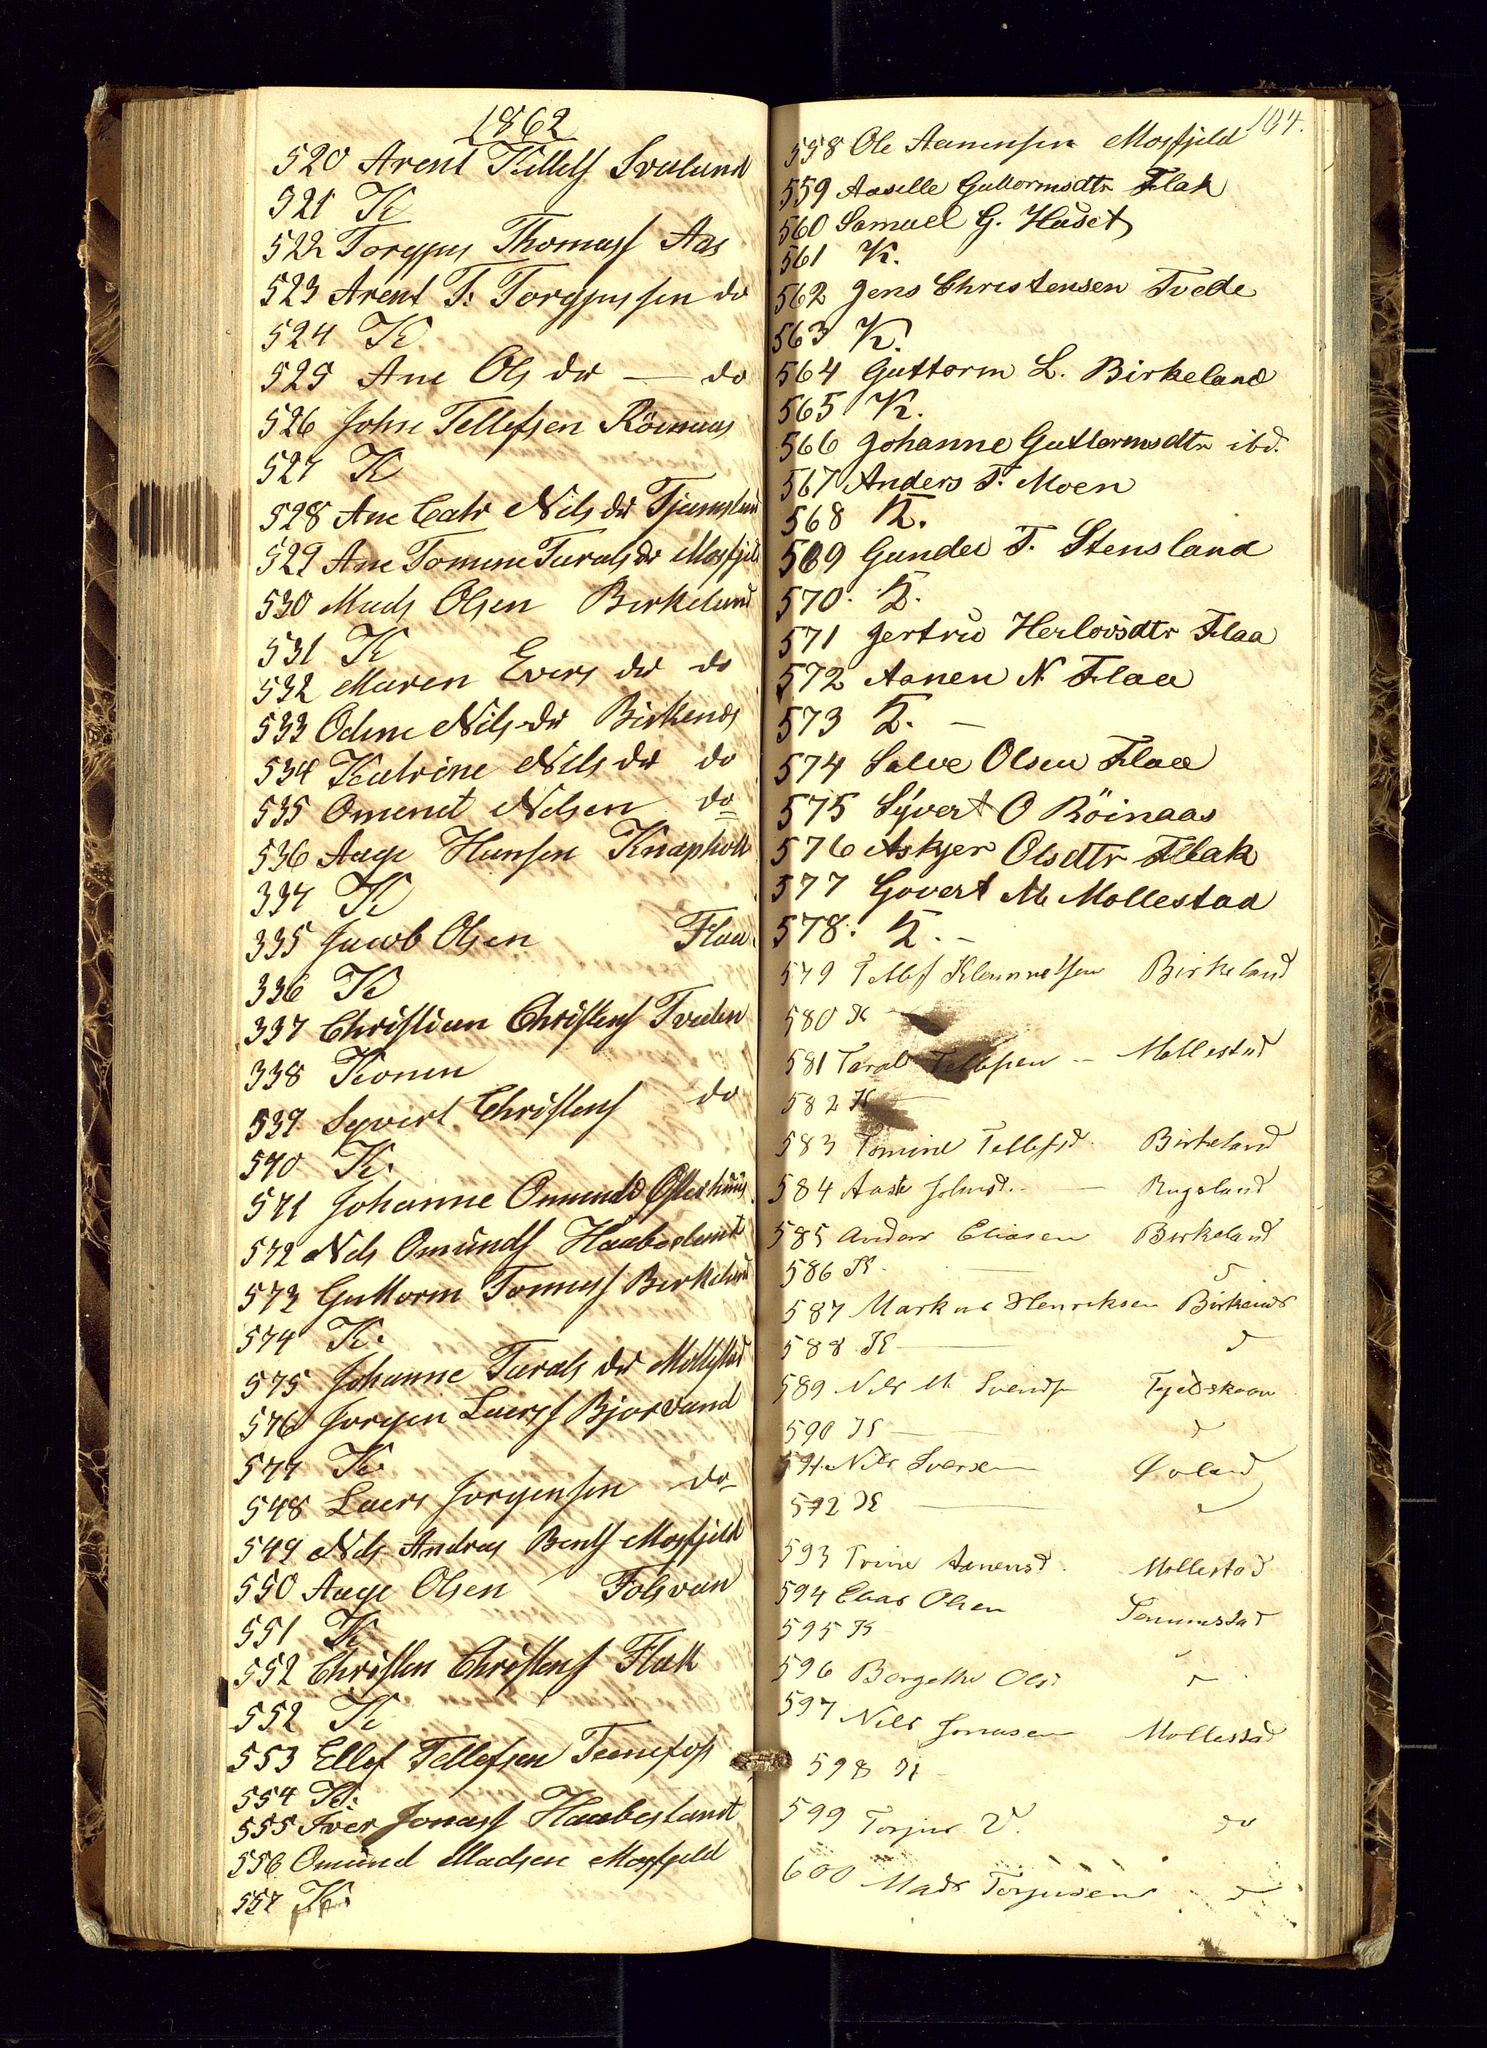 1862
520 Arent Tellefs Svaland
521 K
522 Torgjus Thomass Aas
523 Arent T. Torgjussen do
524 K
525 Ane Ols dr — do
526 John Tellefsen Röinaas
527 K
528 Ane Catr Nils dr Tjumsland
529 Ane Tomine Tarals dr Mosfjeld
530 Mads Olsen Birkeland
531 K
532 Maren Evers dr do
533 Odine Nils dr Birkenes
534 Katrine Nils dr do
535 Omend Nilsen do
536 Aage Hansen Knapholt
337 K
335 Jacob Olsen Flaa
336 K
337 Christian Christens Tveden
338 Konen
539 Syvert Christens do
540 K.
541 Johanne Omunds Østerhuus
542 Nils Omunds Haabesland
543 Guttorm Tomass Birkeland
544 K.
545 Johanne Tarals dr Mollestad
546 Jorgen Laerss Bjorvand
547 K.
548 Laers Jorgensen do
549 Nils Andreas Bents Mosfjeld
550 Aage Olsen Folsvan
551 K
552 Christen Christens Flak
552 K
553 Ellef Tellefsen Teinefos
554 K.
555 Iver Jonass Haabesland
556 Omund Madsen Mosfjeld
557 K.
104.
558 Ole Aanensen Mosfjeld
559 Aaselle Guttormsdtr Flak
560 Samuel G. Huset
561 K.
562 Jens Christensen Tvede
563 K.
564 Guttorm L. Birkeland
565 K.
566 Johanne Guttormsdtr ibd.
567 Anders T. Moen
568 K.
569 Gunder T. Stensland
570. K.
571 Jertru Herlovsdtr Flaa
572 Aanen N Flaa
573 K. —
574 Salve Olsen Flaa
575 Syvert O Röinaas
576 Askjer Olsdtr Flak
577 Govert M Mollestad
578. K. –
579 Tellef Klemmetsen Birkeland
580 K –
581 Taral Tellefsen – Mollestad
582 K –
583 Tomine Tellefsd. Birkeland
584 Aaste Johnsd. — Rugsland
585 Anders Eliasen Birkeland
586 K. — d
587 Markus Henriksen Birkenes
588 K — d
589 Nils M. Svends
590 K — d
591 Nils Iversen
592 K —
593 Trine Aanensd. Mollestad
594 Elias Olsen
595 K
596 Borgethe Olsd
597 Nils Jonasen Mollestad
598 K
599 Torjus V. do
600 Mads Torjusen d